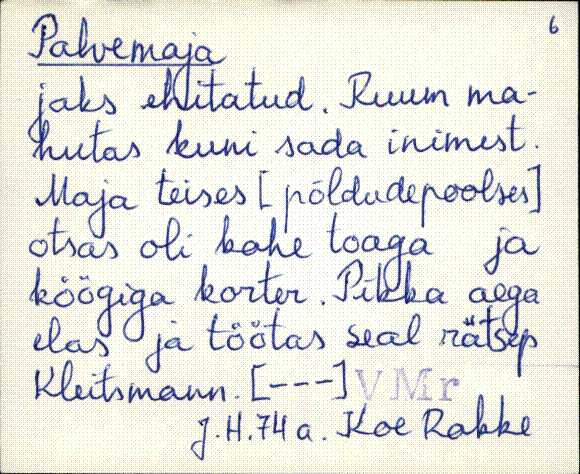 6
Palvemaja
jaks ehitatud. Ruum ma-
hutas kuni sada inimest.
Maja teises [põldudepoolses]
otsas oli kahe toaga ja
köögiga korter. Pikka aega
elas ja töötas seal rätsep
Kleitsmann. [---] VMr
J.H.74 a. Koe Rakke